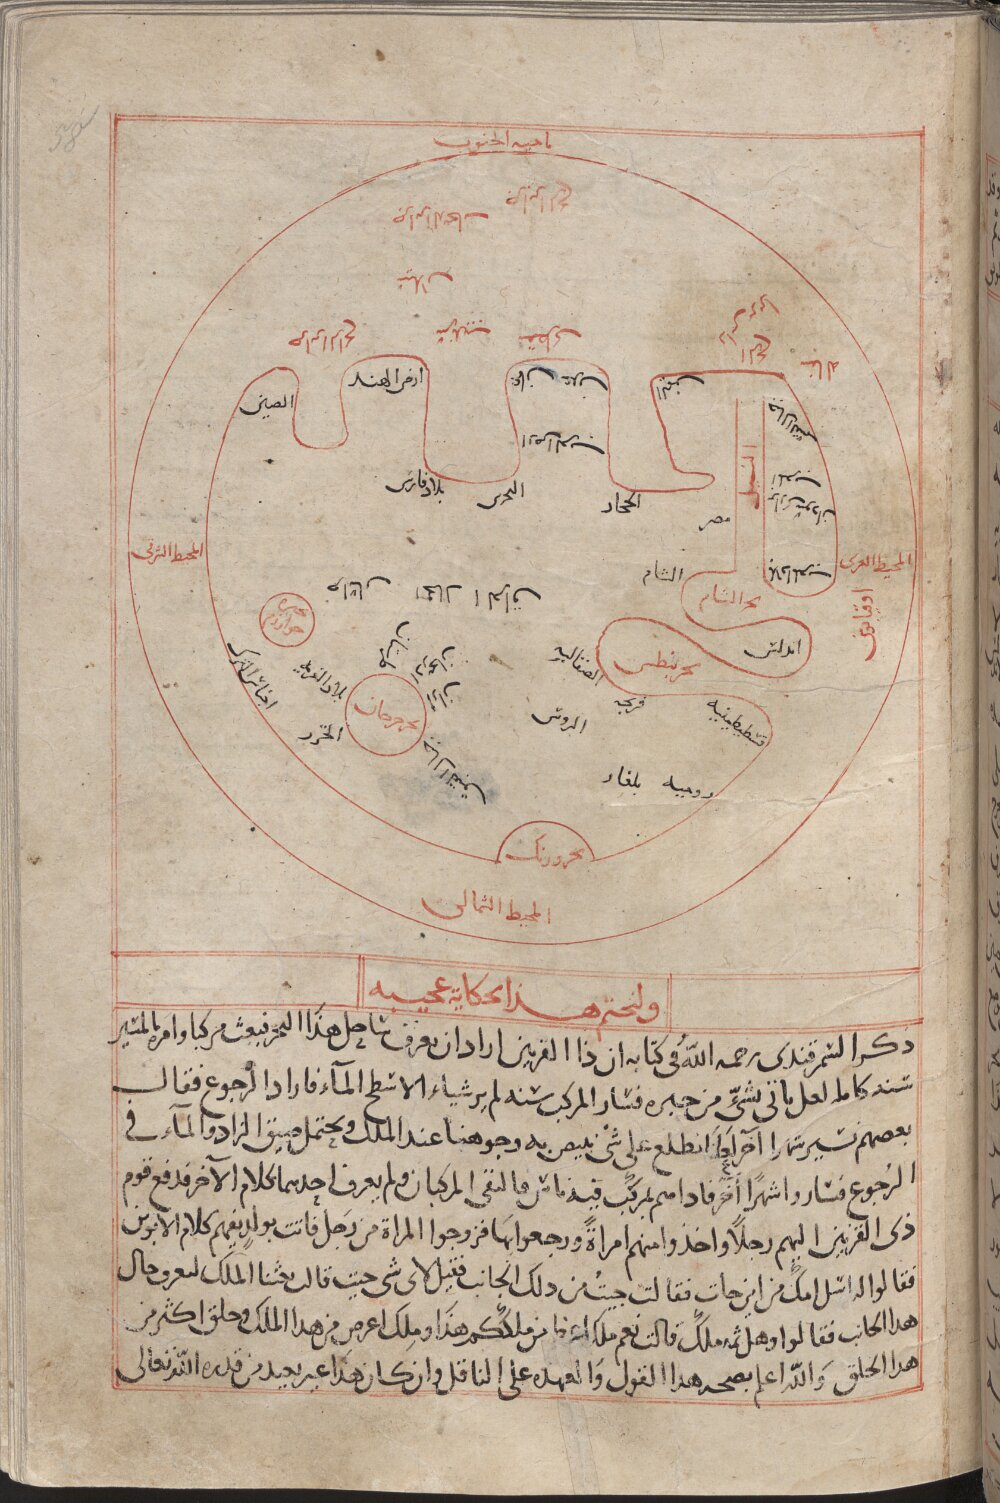 ناحية الجنوب
المحيط الشرقي
المحيط الغربي
اوقيانوس
المحيط الشمالي
الصين
ارض الهند
بلاد فارس
البحرين
الحجاز
اليمن
النيل
مصر
الشام
بحر الشام
اندلس
بحر بنطس
الصقالبه
فرنجه
قسطنطينيه
الروس
روميه
بلغار
بحر ورنك
بحر جرجان
الخزر
بلاد الغزيه
طبرستان
العراق
ولنختم هذا بحكاية عجيبه
ذكر السمرقندي رحمه الله في كتابه ان ذا القرنين اراد ان يعرف ساحل هذا البحر فبعث مركبا وامره بالمسير
سنه كامله لعل ياتي بشئ من خبره فسار المركب سنه لم ير شياء الا سطح الماء فاراد الرجوع فقال
بعضهم نسير شهرا آخر لعلنا نطلع على شئ نبيض به وجوهنا عند الملك ويحتمل ضيق الزاد والماء في
الرجوع فساروا شهرًا آخر فاداهم بمركب فيه ناس فالتقى المركبان ولم يعرف احدهما كلام الآخر فدفع قوم
ذى القرنين اليهم رجلًا واخذوا منهم امراةً ورجعوا بها فزوجوا المراة من رجل فاتت بولد يفهم كلام الابوين
فقالوا له اسئل امك من اين جات فقالت جيت من ذلك الجانب فقيل لاى شى جيت قالت بعثنا الملك لنعرف حال
هذا الجانب فقالوا وهل ثم ملك قالت نعم ملك اعظم من ملككم هذا وملك اعرض من هذا الملك وخلق اكثر من
هذا الخلق والله اعلم بصحه هذا القول والعهده على الناقل وان كان هذا غير بعيد من قدره الله تعالى